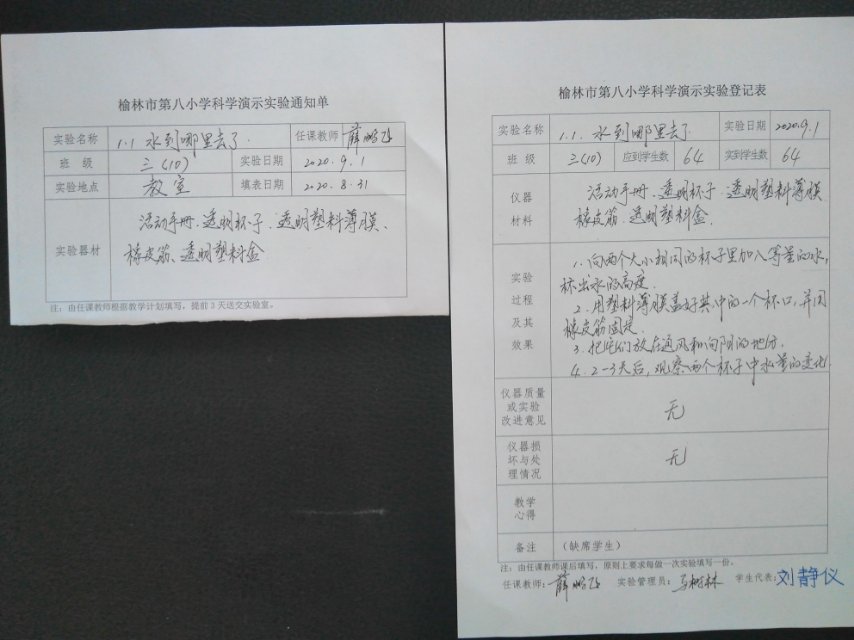 榆林市第八小学科学演示实验通知单
实验名称 1.1 水到哪里去了. 任课教师 薛鹏飞
班 级 三(10) 实验日期 2020.9.1
实验地点 教室 填表日期 2020.8.31
实验器材 活动手册、透明杯子、透明塑料薄膜、
橡皮筋、透明塑料盒
注：由任课教师根据教学计划填写，提前3天送交实验室。
榆林市第八小学科学演示实验登记表
实验名称 1.1. 水到哪里去了. 实验日期 2020.9.1
班 级 三(10) 应到学生数 64 实到学生数 64
仪器
材料
活动手册、透明杯子、透明塑料薄膜
橡皮筋、透明塑料盒.
实验
过程
及其
效果
1. 向两个大小相同的杯子里加入等量的水,
标出水的高度.
2. 用塑料薄膜盖好其中的一个杯口,并用
橡皮筋固定.
3. 把它们放在通风和向阳的地方.
4. 2-3天后,观察两个杯子中水量的变化.
仪器质量
或实验
改进意见
无
仪器损
坏与处
理情况
无
教学
心得
备注 （缺席学生）
注：由任课教师课后填写，原则上要求每做一次实验填写一份。
任课教师：薛鹏飞 实验管理员：马树林 学生代表：刘静仪